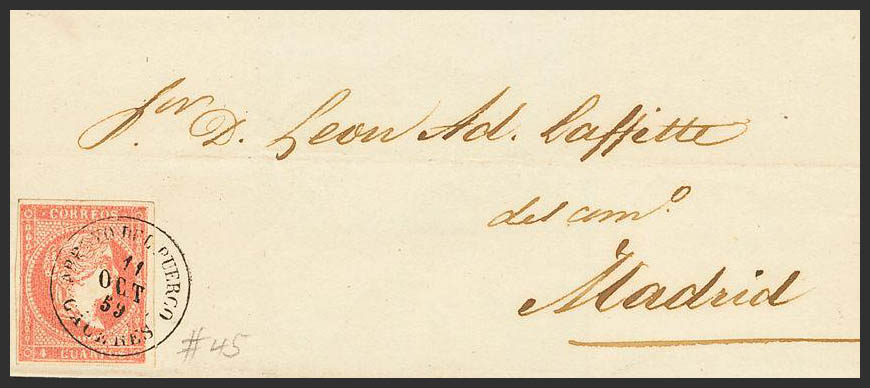 Sor D. Leon Ad. Laffitte
del comº.
Madrid
CORREOS
ARROYO DEL PUERCO
11
OCT
59
CACERES
#45